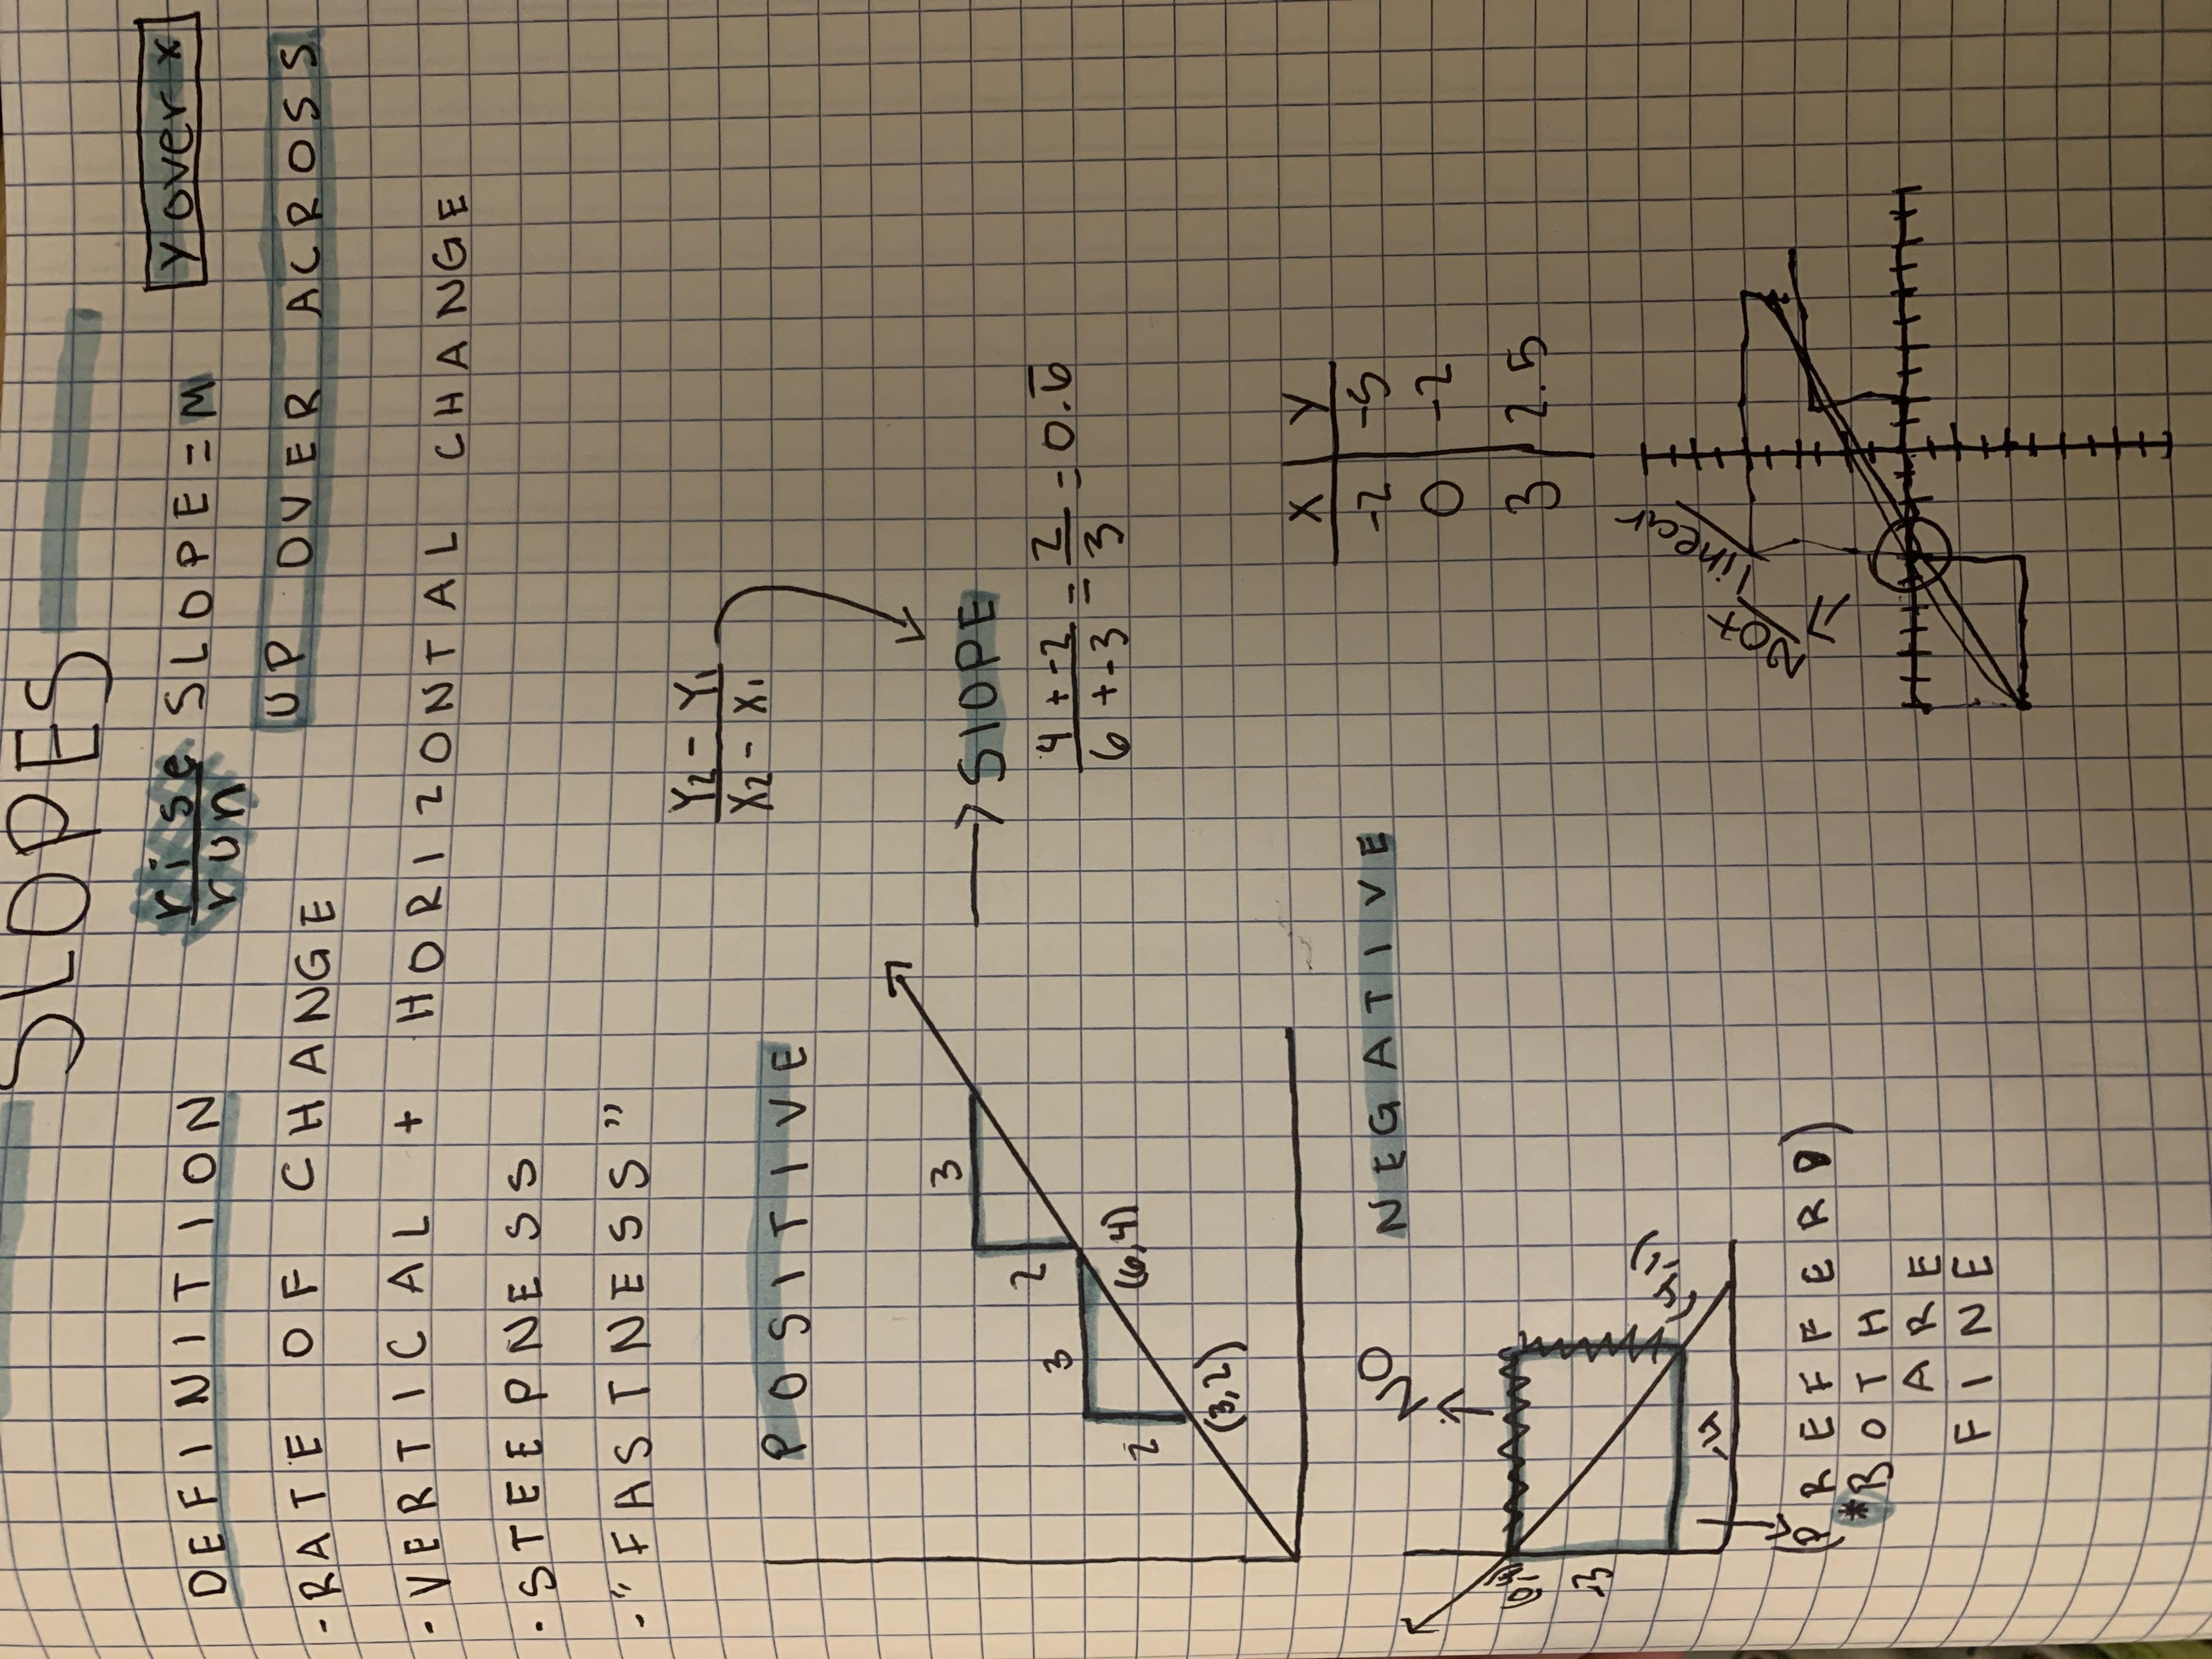 SLOPES
DEFINITION
rise
run
SLOPE = M
y over x
- RATE OF CHANGE
UP OVER ACROSS
- VERTICAL + HORIZONTAL CHANGE
- STEEPNESS
- "FASTNESS"
Y2 - Y1
X2 - X1
POSITIVE
3
2
(6,4)
3
2
(3,2)
SlOPE
4 + -2 = 2 = 0.6̅
6 + -3 3
NEGATIVE
X Y
-2 -5
0 -2
3 2.5
NO
3
(PREFFERD)
*BOTH
ARE
FINE
linear